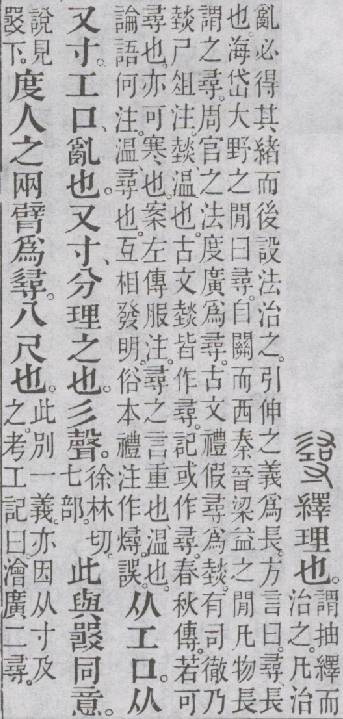 繹理也。謂抽繹而
治之。凡治
亂必得其緒而後設法治之。引伸之義爲長。方言曰。尋長
也。海岱大野之閒曰尋。自關而西秦晉梁益之閒凡物長
謂之尋。周官之法度廣爲尋。古文禮假尋爲燅。有司徹乃
燅尸俎注。燅温也。古文燅皆作尋。記或作尋。春秋傳。若可
尋也。亦可寒也。案左傳服注。尋之言重也。温也。
論語何注。温尋也。互相發明。俗本禮注作燖。誤。从工口。从
又寸。工口、亂也。又寸、分理之也。彡聲。徐林切。
七部。此與𤕦同意。
說見
𤕦下。度人之兩臂爲尋。八尺也。此別一義。亦因从寸及
之。考工記曰澮廣二尋。